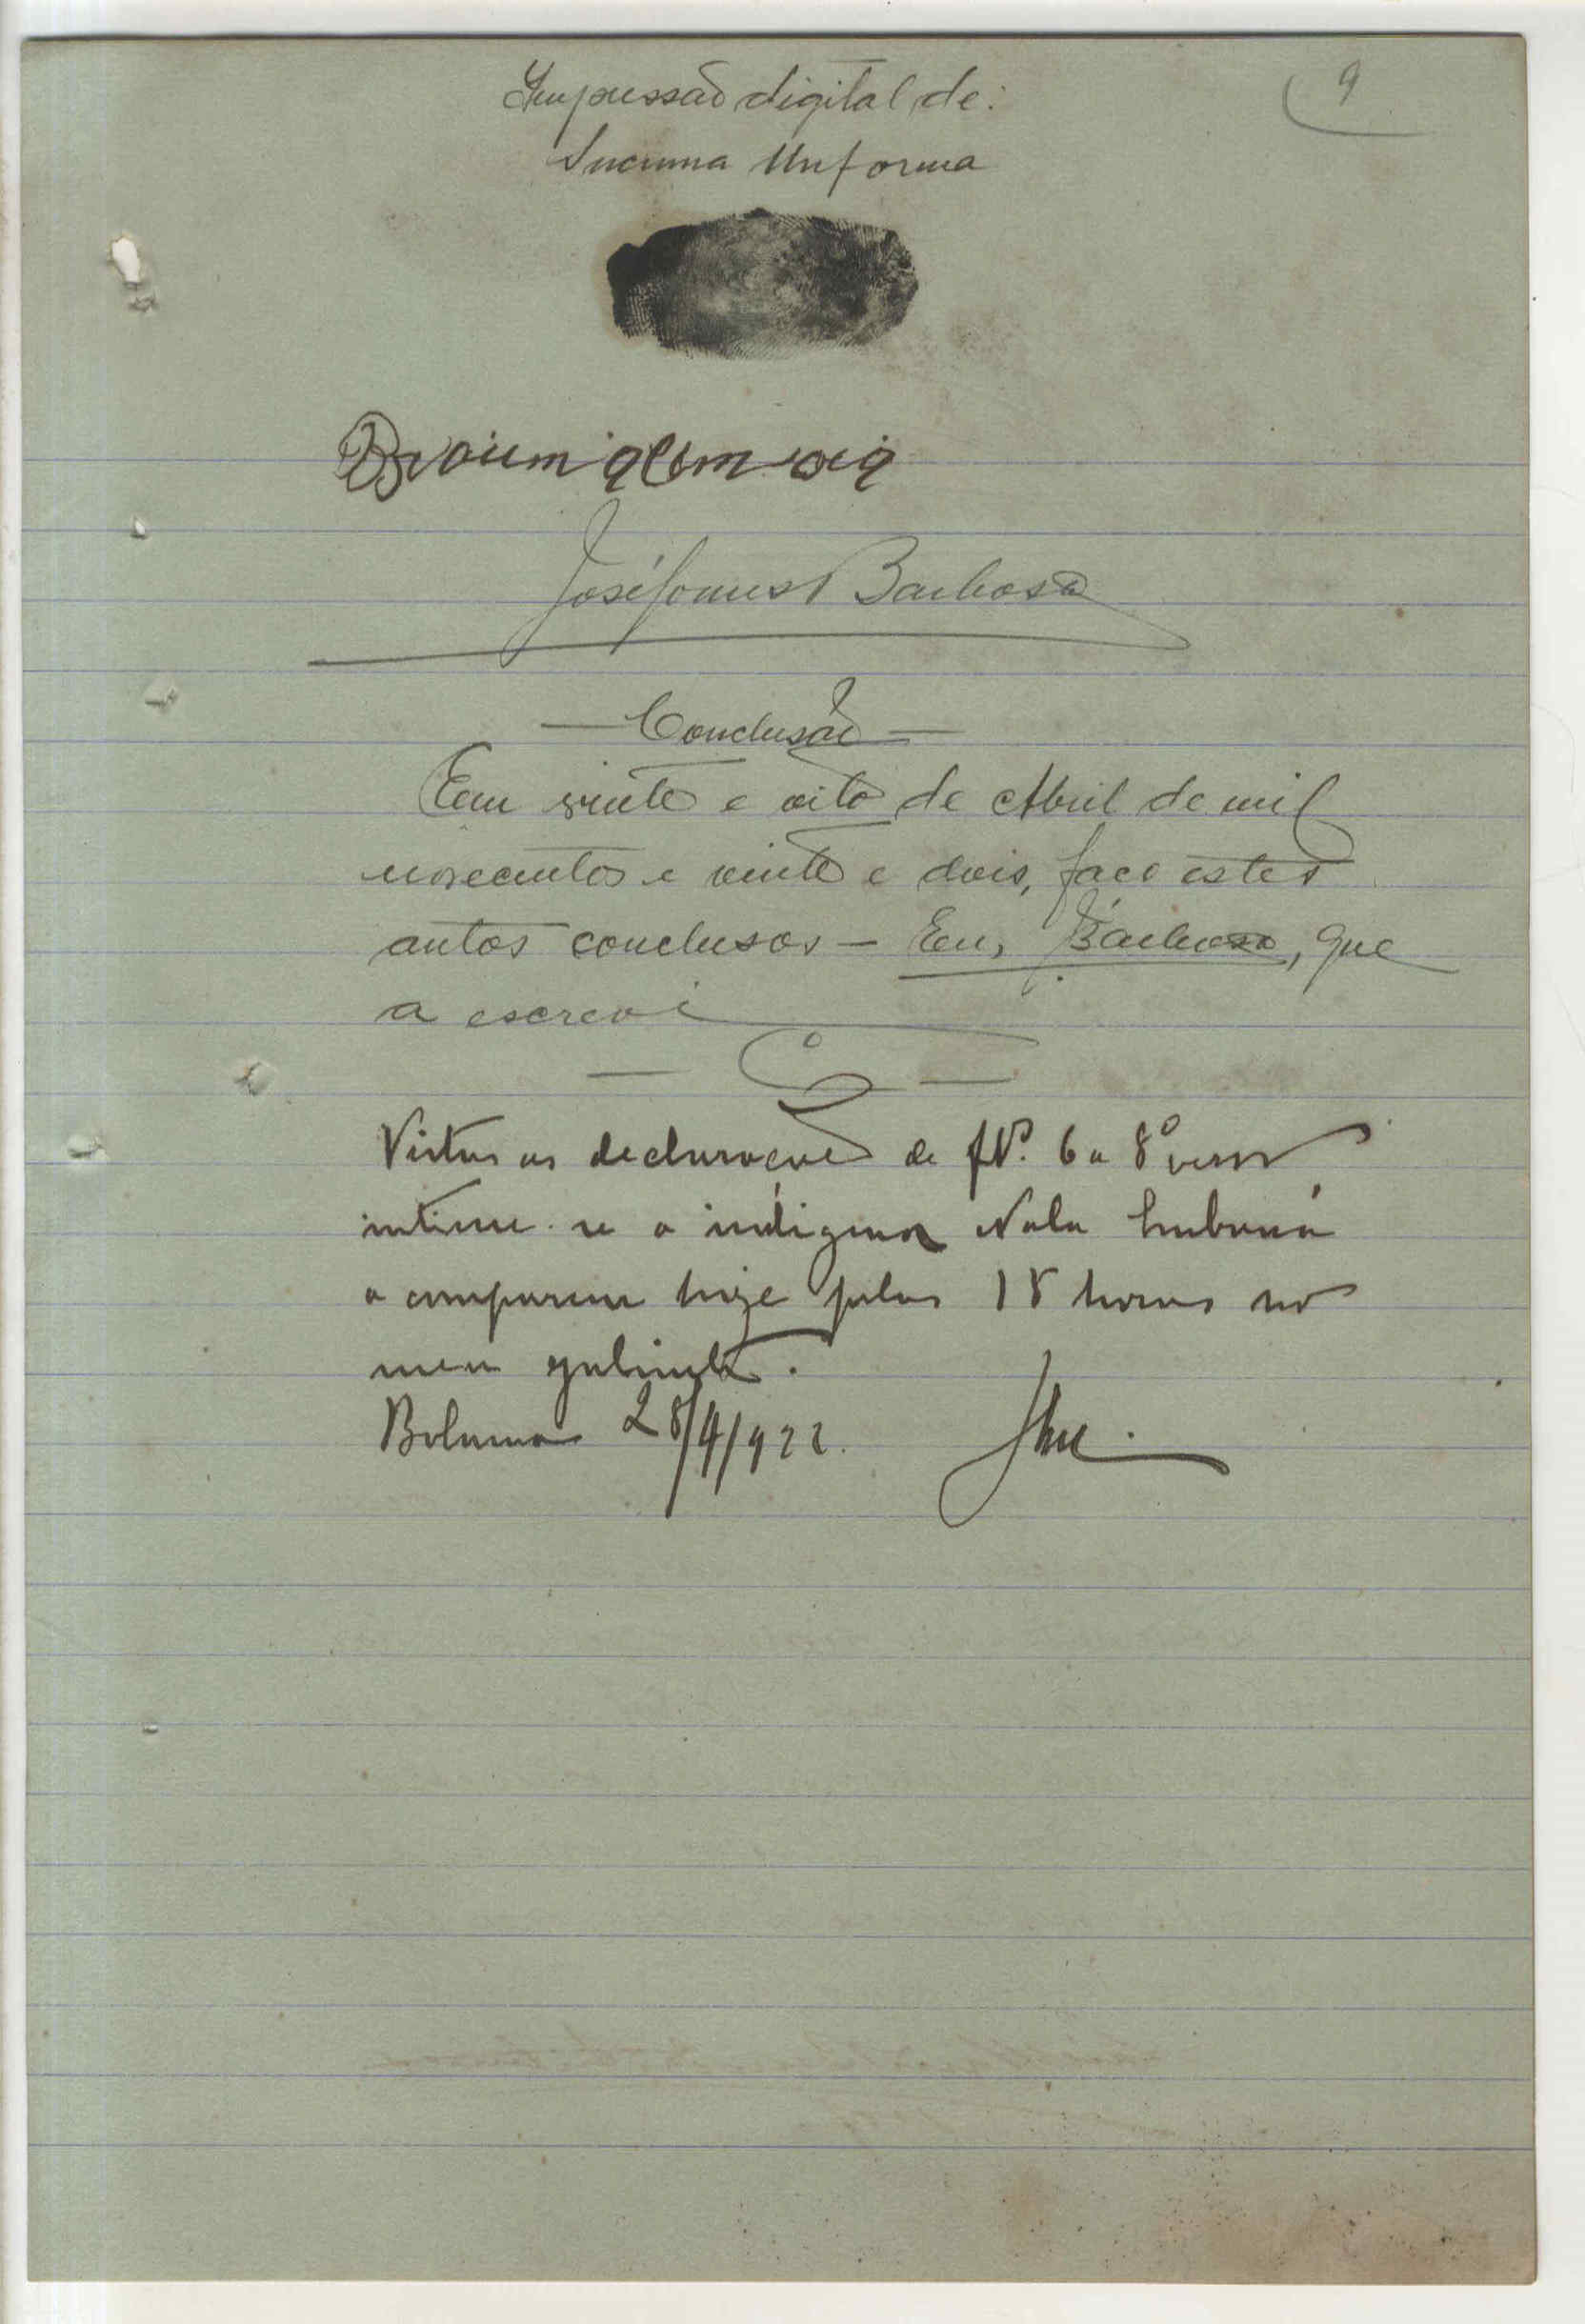 9
Impressão digital de:
Incuma Unforma
José Gomes Barbosa
— Conclusão —
Em vinte e oito de Abril de mil
novecentos e vinte e dois, faço estes
autos conclusos — Eu, Barbosa, que
a escrevi
Vistas as declarações de fls. 6 a 8º verso
intime-se o indigena Nala
a comparecer hoje pelas 18 horas no
meu gabinete.
Bolama 28/4/922.